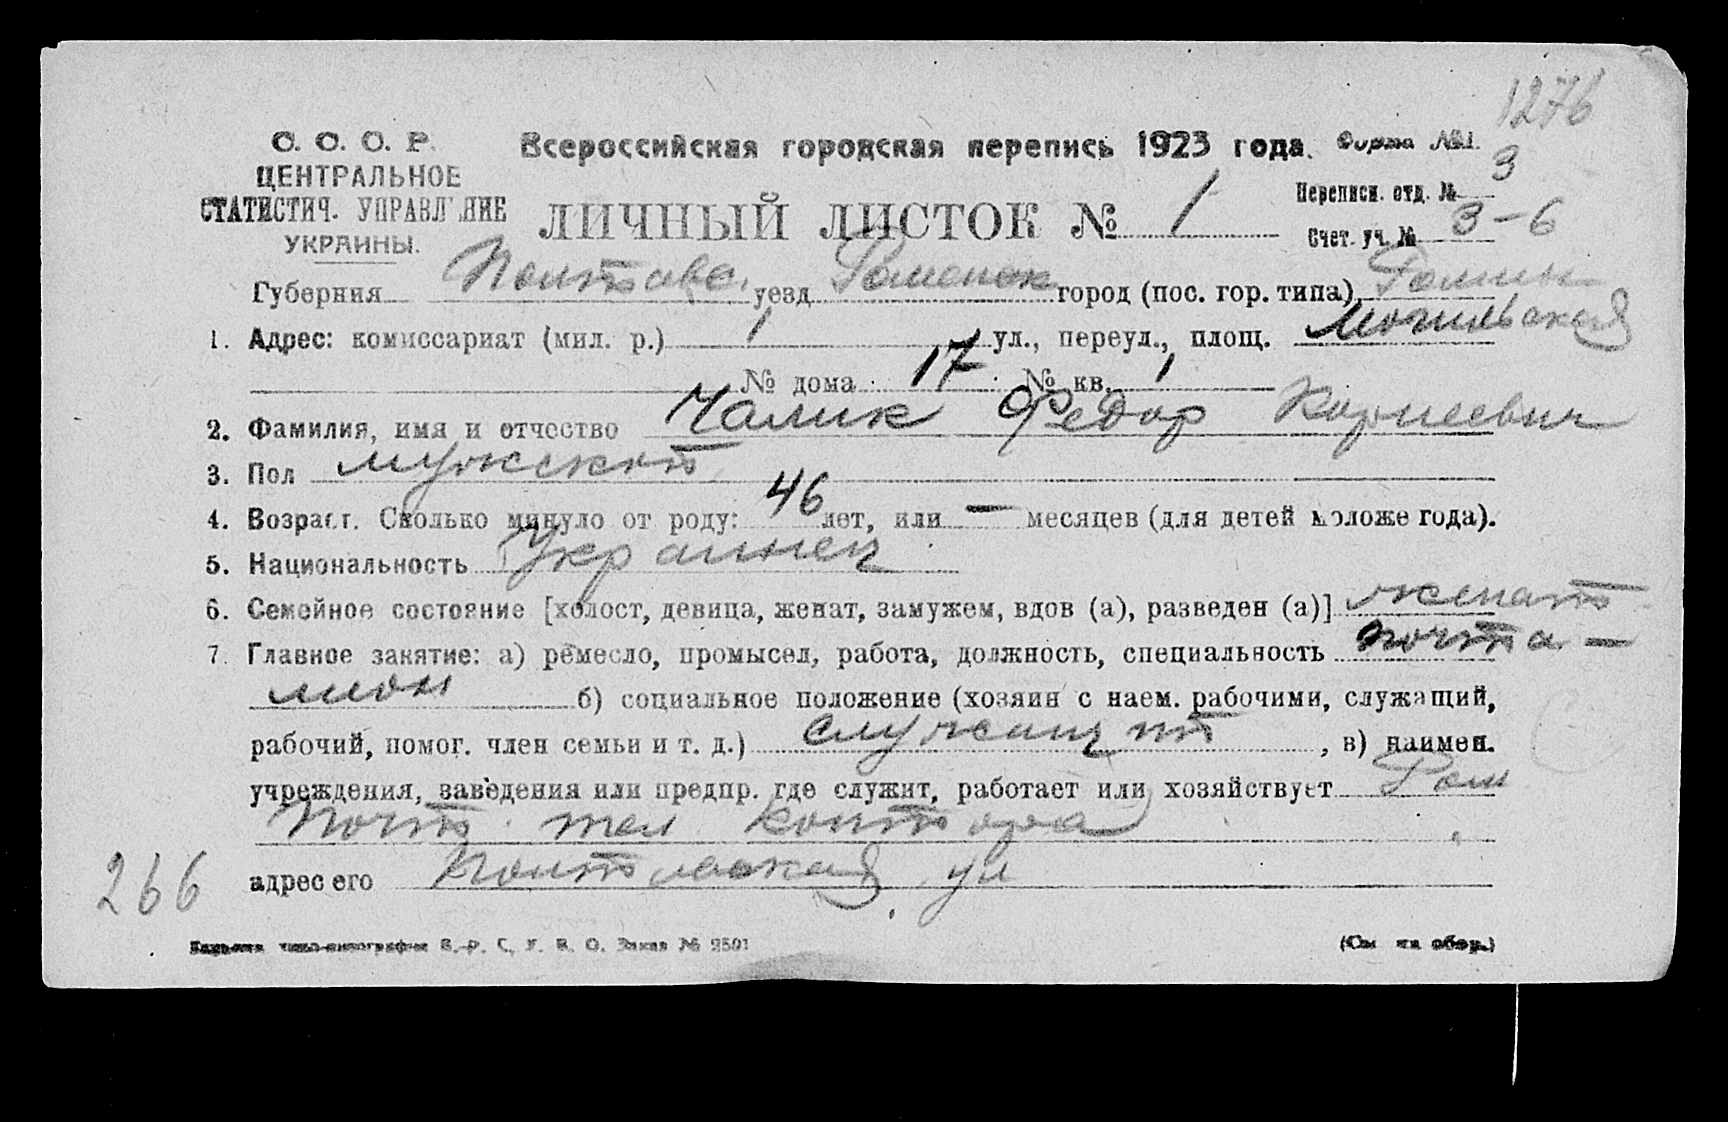 1276
С. С. С. Р. Всероссийская городская перепись 1923 года. Форма №1.
ЦЕНТРАЛЬНОЕ
СТАТИСТИЧ. УПРАВЛЕНИЕ
УКРАИНЫ.
ЛИЧНЫЙ ЛИСТОК № 1
Переписн. отд. № 3
Счет. уч. № 3-6
Губерния Полтавс. уезд Роменск город (пос. гор. типа) Ромны
1. Адрес: комиссариат (мил. р.) 1 ул., переул., площ.
№ дома 17 № кв. 1
2. Фамилия, имя и отчество Чалик Федор Корнеевич
3. Пол мужской
4. Возраст. Сколько минуло от роду: 46 лет, или — месяцев (для детей моложе года).
5. Национальность Украинец
6. Семейное состояние [холост, девица, женат, замужем, вдов (а), разведен (а)] женат
7. Главное занятие: а) ремесло, промысел, работа, должность, специальность почта-
лион б) социальное положение (хозяин с наем. рабочими, служащий,
рабочий, помог. член семьи и т. д.) служащий, в) наимен.
учреждения, заведения или предпр. где служит, работает или хозяйствует Ром
Почт. тел контора
адрес его ул
266
Заказ № 2501
(См на обор.)